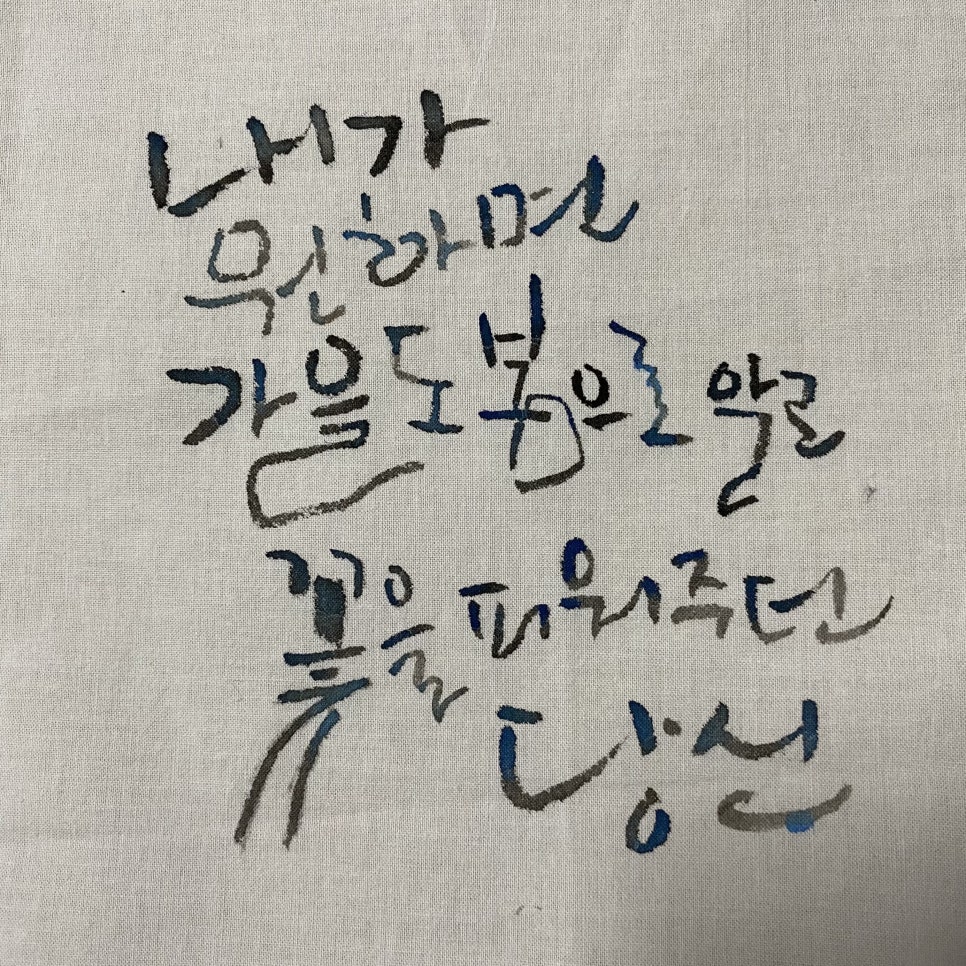 내가
원하면
가을도 봄으로 알고
꽃을 피워주던
당신